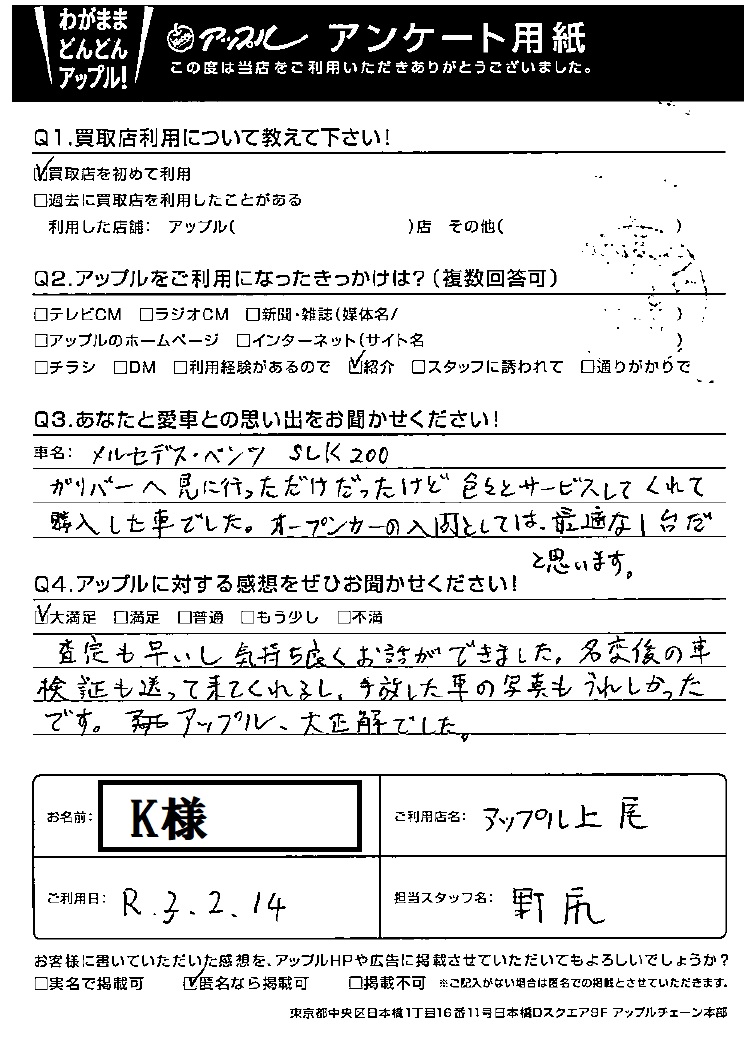 わがまま
どんどん
アップル!
アップル アンケート用紙
この度は当店をご利用いただきありがとうございました。
Q1.買取店利用について教えて下さい!
☑買取店を初めて利用
□過去に買取店を利用したことがある
利用した店舗: アップル( )店 その他( )
Q2.アップルをご利用になったきっかけは?(複数回答可)
□テレビCM □ラジオCM □新聞・雑誌(媒体名/ )
□アップルのホームページ □インターネット(サイト名 )
□チラシ □DM □利用経験があるので ☑紹介 □スタッフに誘われて □通りがかりで
Q3.あなたと愛車との思い出をお聞かせください!
車名: メルセデス・ベンツ SLK 200
ガリバーへ見に行っただけだったけど色々とサービスしてくれて
購入した車でした。オープンカーの入門としては、最適な1台だ
と思います。
Q4.アップルに対する感想をぜひお聞かせください!
☑大満足 □満足 □普通 □もう少し □不満
査定も早いし気持ち良くお話ができました。名変後の車
検証も送って来てくれるし、手放した車の写真もうれしかった
です。アップル、大正解でした。
お名前: K様
ご利用店名: アップル上尾
ご利用日: R.3.2.14
担当スタッフ名: 野尻
お客様に書いていただいた感想を、アップルHPや広告に掲載させていただいてもよろしいでしょうか?
□実名で掲載可 ☑匿名なら掲載可 □掲載不可 ※ご記入がない場合は匿名での掲載とさせていただきます。
東京都中央区日本橋1丁目16番11号日本橋Dスクエア9F アップルチェーン本部